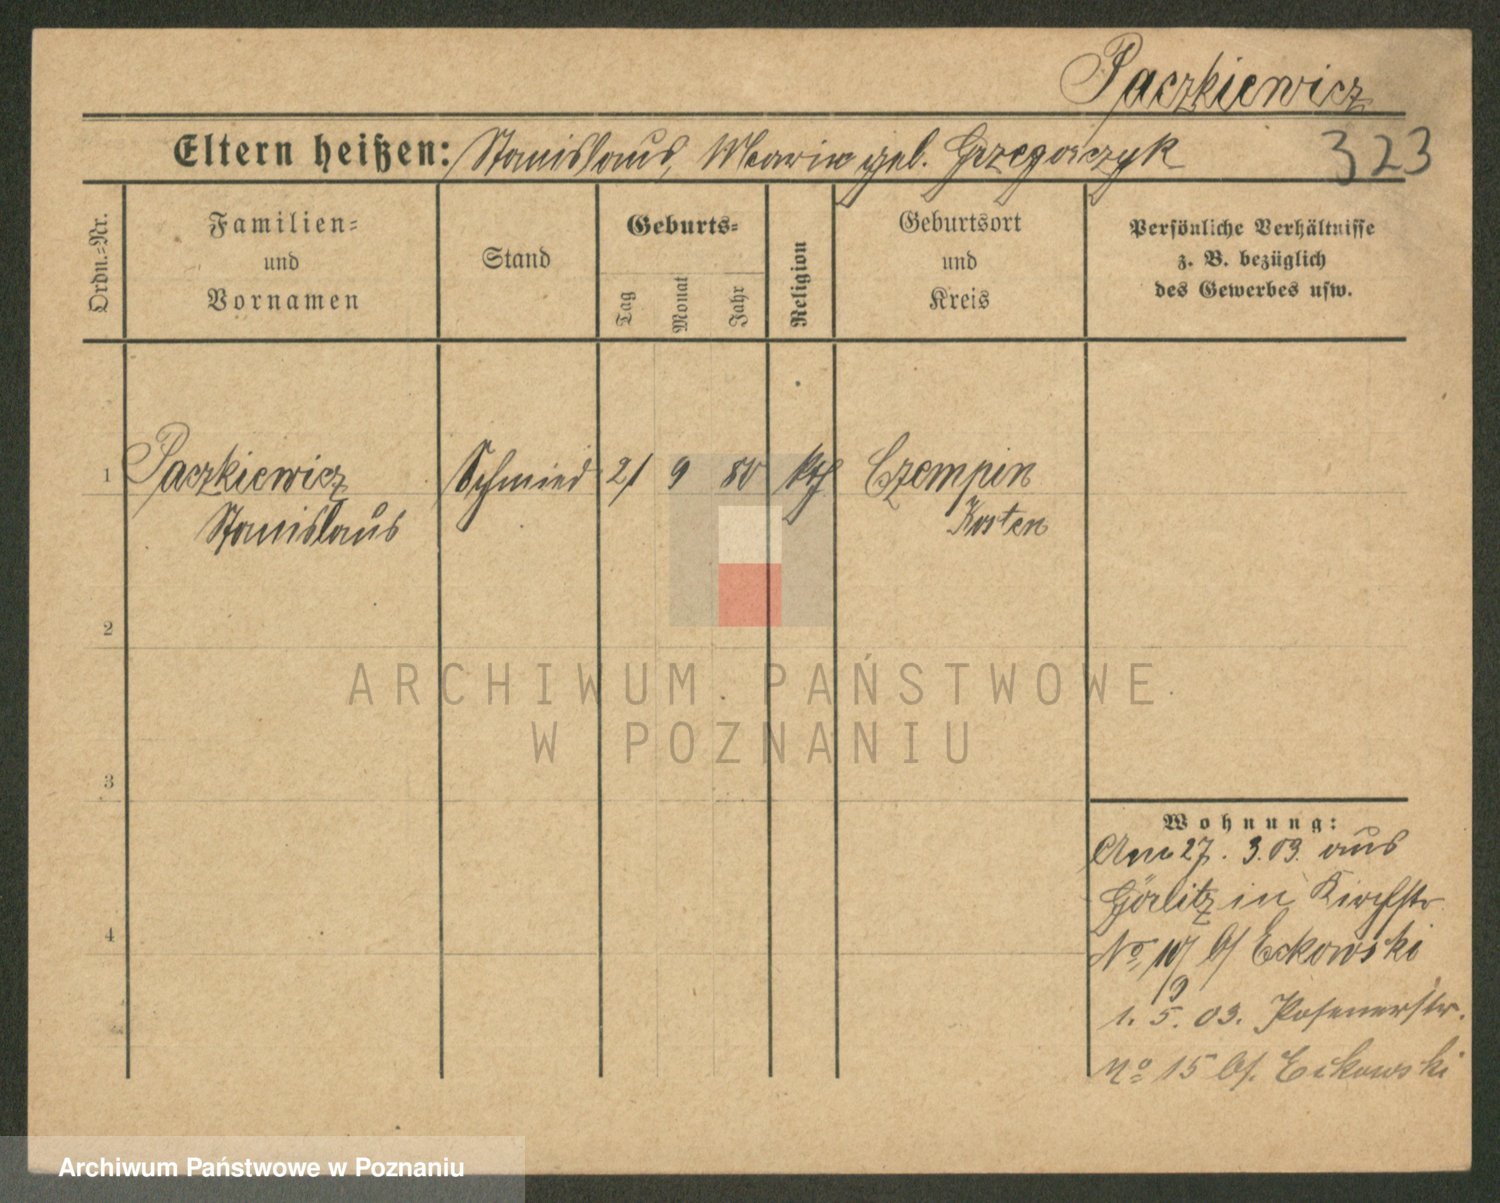 Paczkiewicz
Eltern heißen: Stanislaus, Maria geb. Grzegorczyk
323
Ordn.-Nr.
Familien-
und
Vornamen
Stand
Geburts-
Tag
Monat
Jahr
Religion
Geburtsort
und
Kreis
Persönliche Verhältnisse
z. B. bezüglich
des Gewerbes usw.
1 Paczkiewicz Schmied 21 9 80 kth Czempin
Stanislaus Kosten
2
3
4
Wohnung:
Am 27. 3. 03. aus
Görlitz in Kirchstr
No 10 b/ Eckowski
1. 5. 03. Posenerstr.
No 15 b/. Eckowski
ARCHIWUM PAŃSTWOWE
W POZNANIU
Archiwum Państwowe w Poznaniu